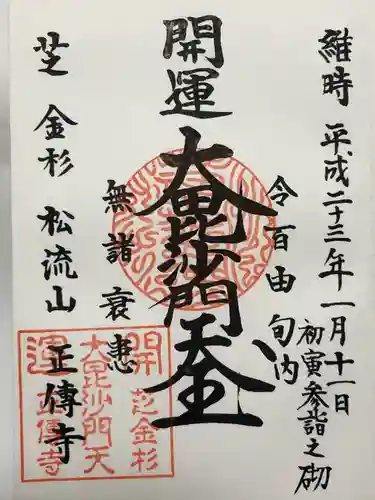 維時 平成二十三年一月十一日
初寅参詣之砌
令百由旬内
開運大毘沙門天王
無諸衰患
芝 金杉 松流山
正傳寺
開運
大毘沙門天
芝金杉
正傳寺